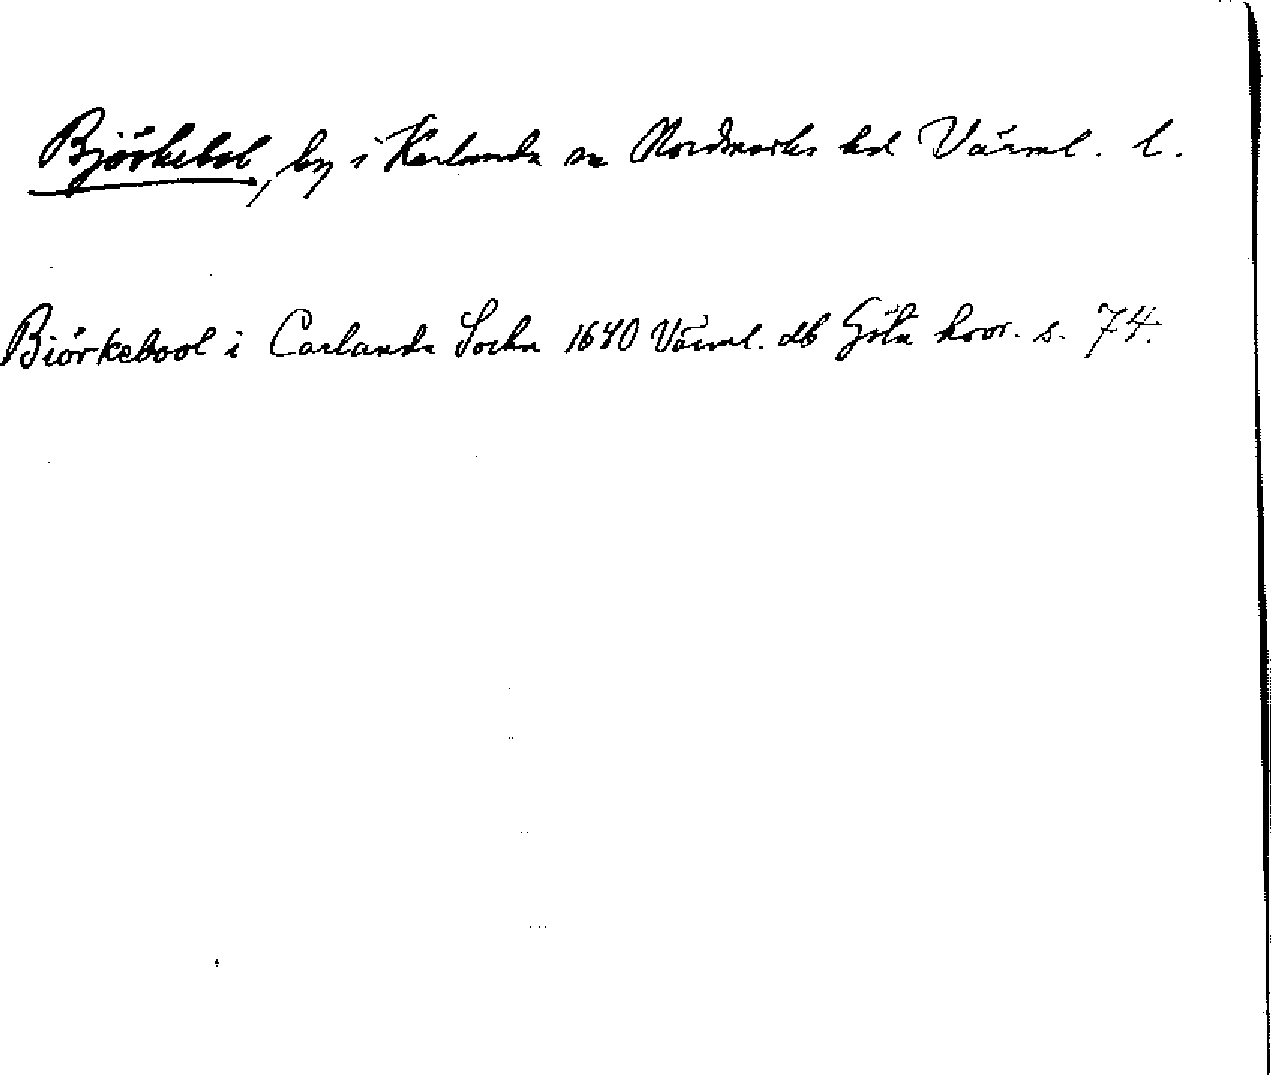 Björkebol, by i Karlanda sn Nordmarks hd Värml. l.
Biörkebool i Carlanda Sochn 1640 Värml. db Göta hovr. s. 74.